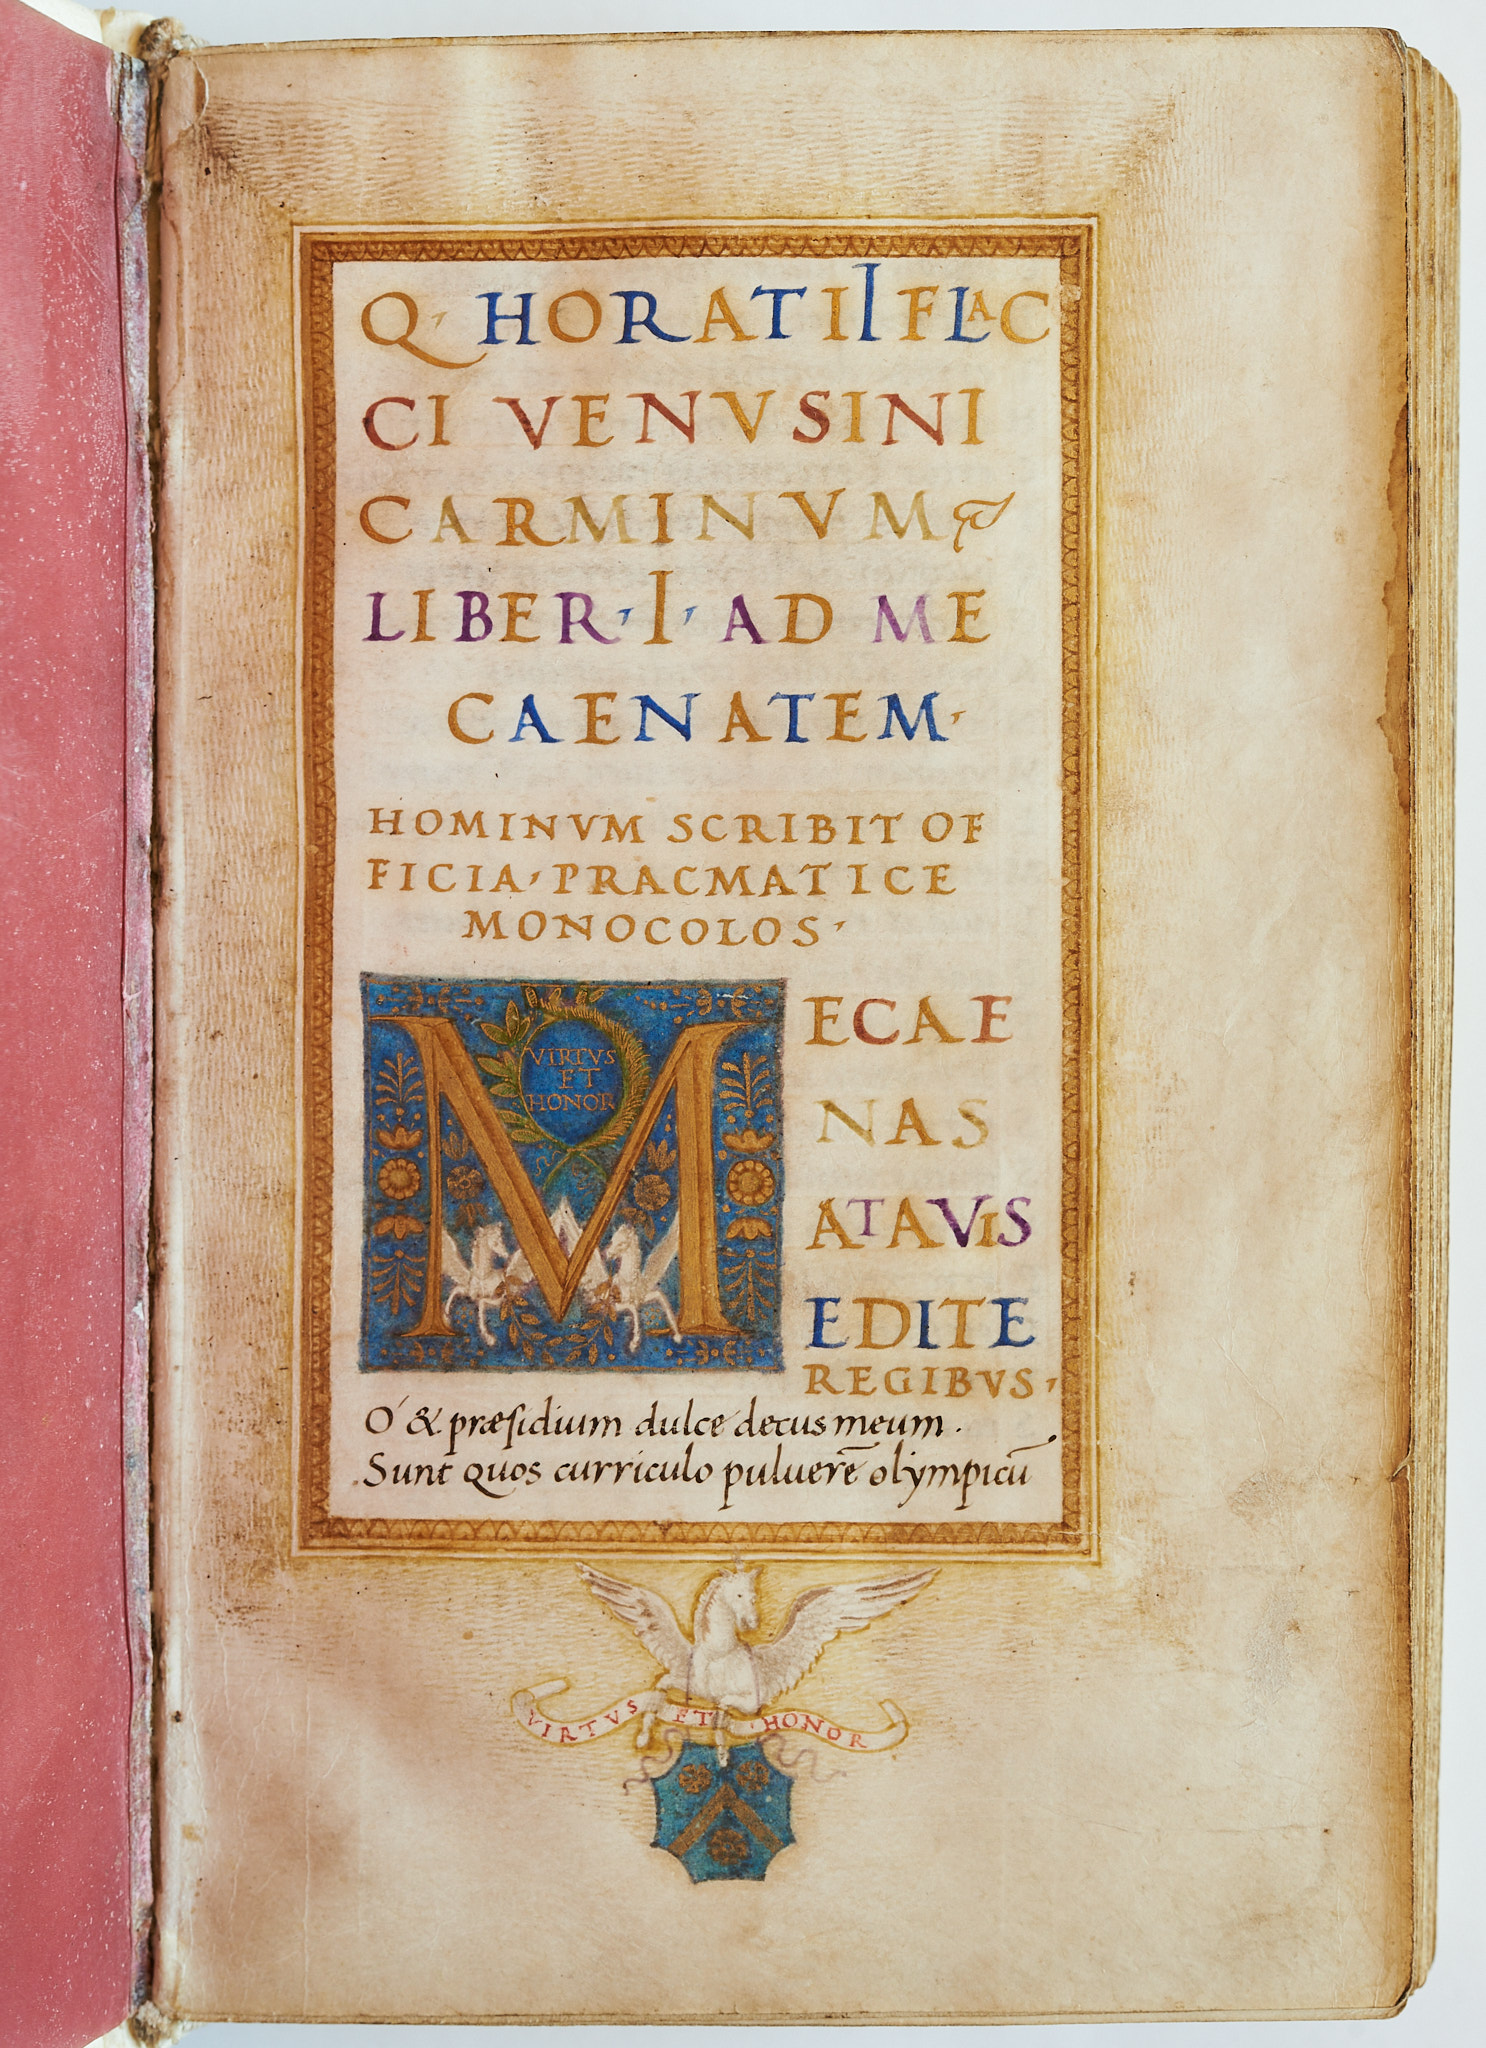 Q· HORATII FLAC
CI VENVSINI
CARMINVM
LIBER · I · AD ME
CAENATEM ·
HOMINVM SCRIBIT OF
FICIA · PRACMATICE
MONOCOLOS ·
VIRTVS
ET
HONOR
MECAE
NAS
ATAVIS
EDITE
REGIBVS ·
O´ & præſidium dulce decus meum .
Sunt quos curriculo puluerē olympicū
VIRTVS ET · HONOR